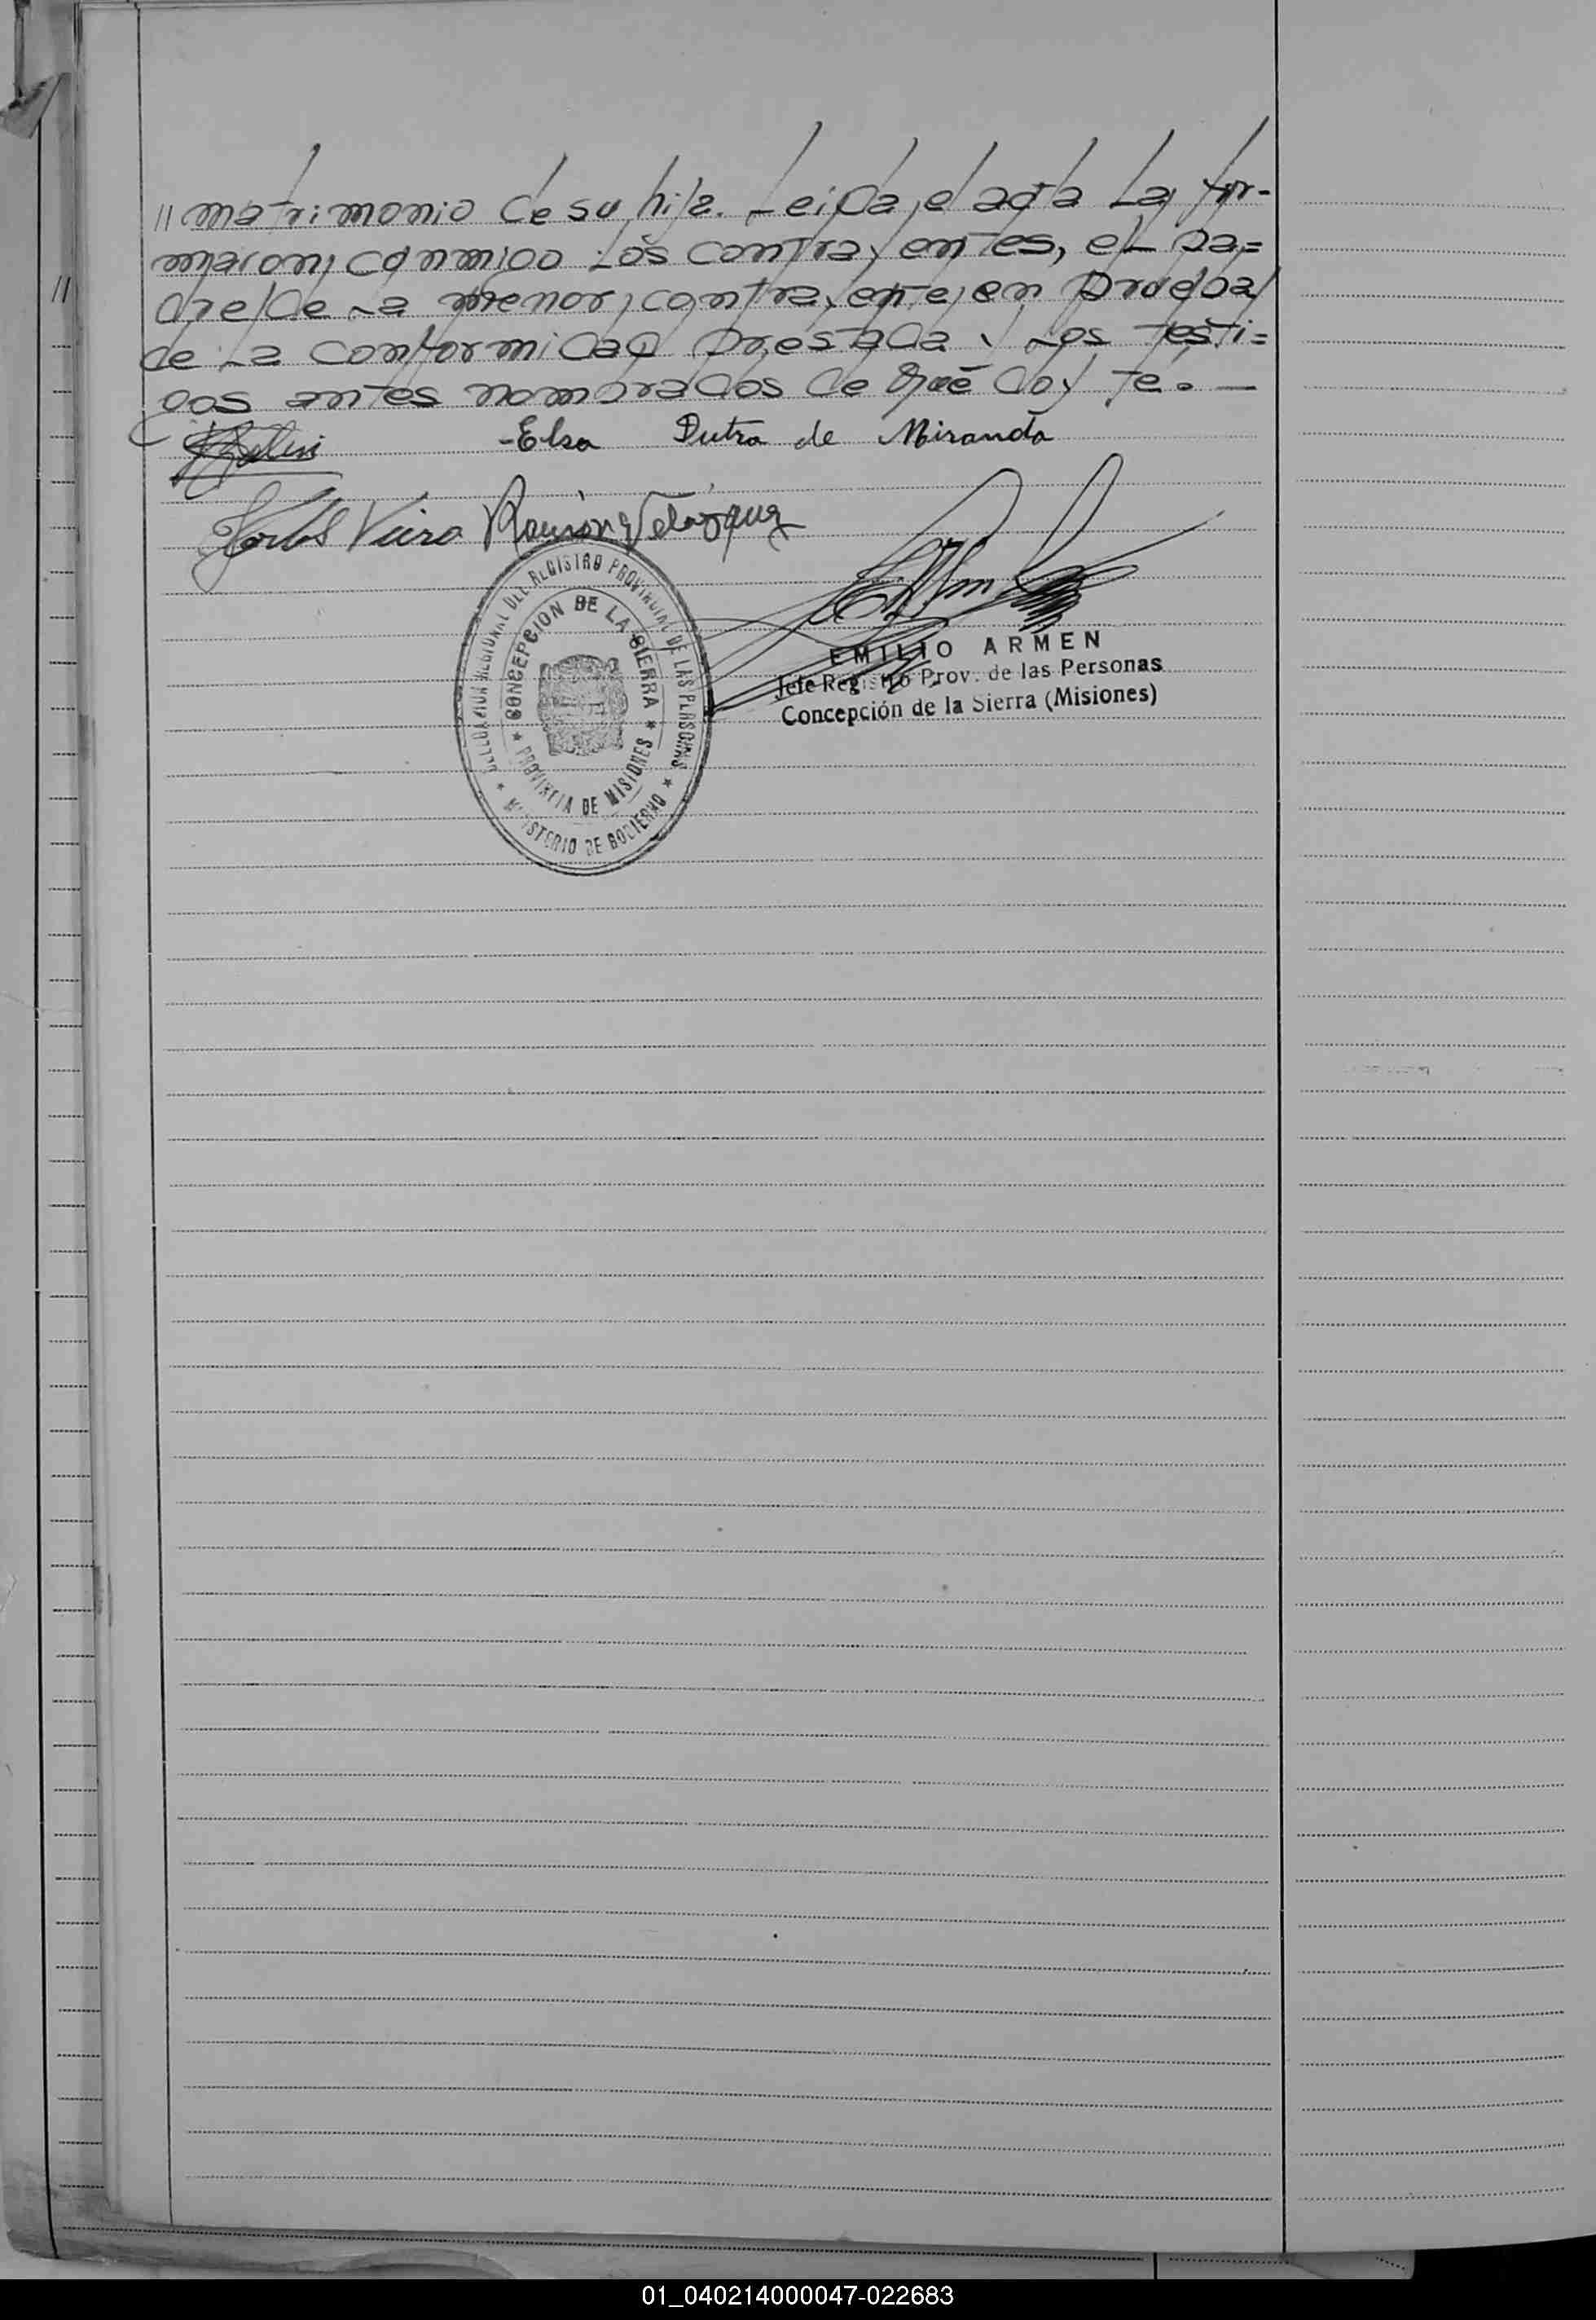 // matrimonio de su hija. Leída el acta la fir-
maron, conmigo los contrayentes, el pa=
dre de la menor contrayente, en prueba
de la conformidad prestada y los testi=
gos antes nombrados de que doy fe. —
-Elsa Dutra de Miranda
Vieira Ramón Velazquez
EMILIO ARMEN
Jefe Registro Prov. de las Personas
Concepción de la Sierra (Misiones)
DELEGACION REGIONAL DEL REGISTRO PROVINCIAL DE LAS PERSONAS
CONCEPCION DE LA SIERRA
* PROVINCIA DE MISIONES *
* MINISTERIO DE GOBIERNO *
//
01_040214000047-022683